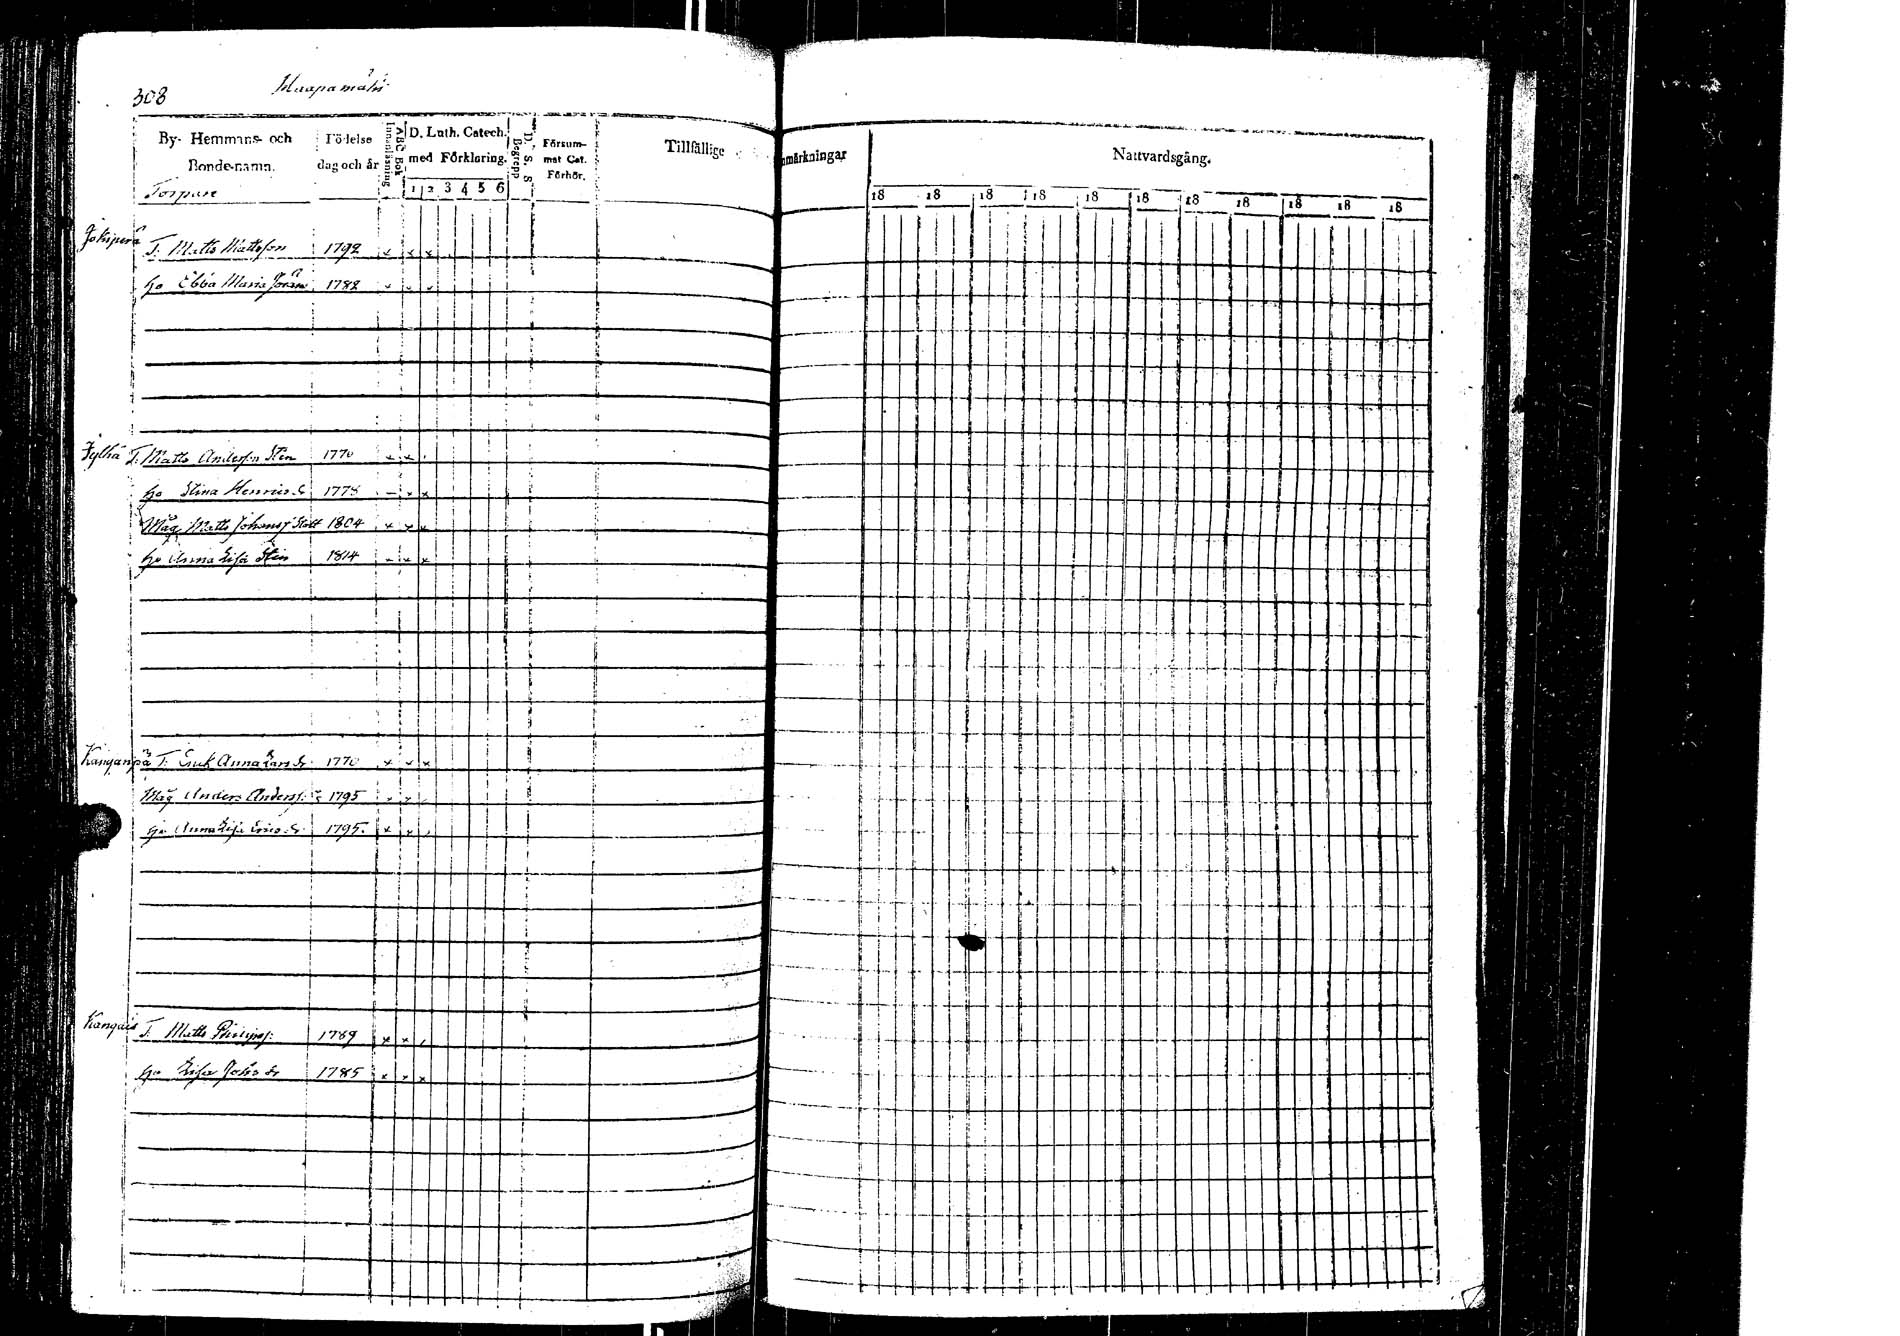 308 Haapamäki
By- Hemmans- och Bonde-namn.
Födelse dag och år
ABC Bok Innanläsning
D. Luth. Catech. med Förklaring.
1 2 3 4 5 6
D. S. S Begrepp
Försum- mat Cat. Förhör.
Tillfällige
Anmärkningar
Nattvardsgång.
18 18 18 18 18 18 18 18 18 18 18
Torpare
Jokiperä T. Matts Mattsson 1792 x x x
ho Ebba Maria 1782
Jylhä T. Matts Andersson Sten 1770 x x
ho Stina Henricsdr 1778 - x x
Måg Matts Johanss 1804 x x x
ho Anna Lisa Sten 1814 - x x
Kanganpä T. Erick Anna Larsdr 1770 x x x
Måg Anders Anderss: 1795
ho Anna Lisa Ericsdr 1795. x x
Kangais T. Matts Philipss: 1789 x x
ho Lisa Johsdr 1785 x x x